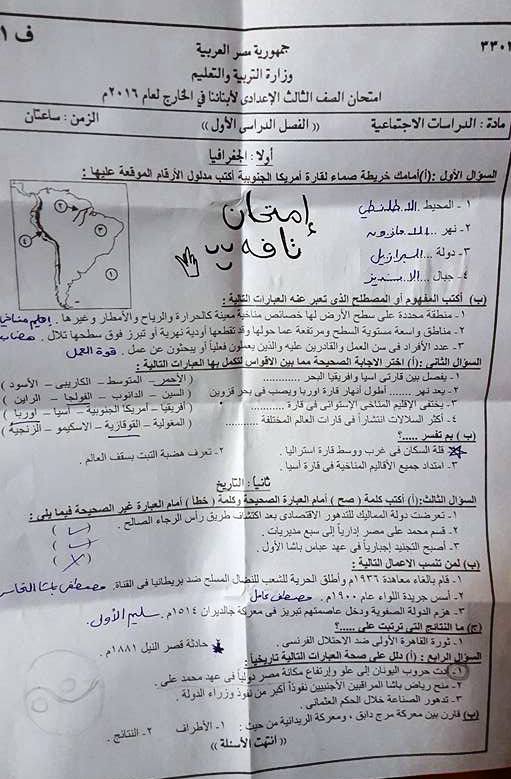 ف ١
٣٣٠٢
جمهورية مصر العربية
وزارة التربية والتعليم
امتحان الصف الثالث الإعدادى لأبنائنا في الخارج لعام ٢٠١٦م
مادة : الدراسات الاجتماعية (( الفصل الدراسي الأول )) الزمن : ساعتان
أولا : الجغرافيا
السؤال الأول :(أ)أمامك خريطة صماء لقارة أمريكا الجنوبية أكتب مدلول الأرقام الموقعة عليها :
١ - المحيط الاطلنطى
٢ - نهر الامازون
٣ - دولة البرازيل
٤ - جبال الانديز
إمتحان
تافه
٢
٣
٤
١
(ب) أكتب المفهوم أو المصطلح الذى تعبر عنه العبارات التالية :
١ - منطقة محددة على سطح الأرض لها خصائص مناخية معينة كالحرارة والرياح والأمطار وغيرها . إقليم مناخى
٢ - مناطق واسعة مستوية السطح ومرتفعة عما حولها وقد تقطعها أودية نهرية أو تبرز فوق سطحها تلال . هضاب
٣ - عدد الأفراد فى سن العمل والقادرين عليه والذين يعملون فعلياً أو يبحثون عن عمل . قوة العمل
السؤال الثاني :(أ) اختر الاجابة الصحيحة مما بين الاقواس لتكمل بها العبارات التالية :
١ - يفصل بين قارتى اسيا وافريقيا البحر ............ ( الأحمر – المتوسط – الكاريبى – الأسود )
٢ - يعد نهر ....... أطول أنهار قارة اوربا ويصب فى بحر قزوين ( السين – الدانوب – الفولجا – الراين )
٣ - يختفى الإقليم المناخى الإستوائى فى قارة ............ ( أفريقيا – أمريكا الجنوبية – أسيا – اوربا )
٤ - أكثر السلالات انتشاراً فى قارات العالم المختلفة ............ ( المغولية – القوقازية – الاسكيمو – الزنجية )
(ب) بم تفسر .....؟
١ - قلة السكان فى غرب ووسط قارة استراليا . ٢ - تعرف هضبة التبت بسقف العالم .
٣ - امتداد جميع الأقاليم المناخية فى قارة أسيا .
ثانيا : التاريخ
السؤال الثالث:(أ) أكتب كلمة ( صح ) أمام العبارة الصحيحة وكلمة ( خطأ ) أمام العبارة غير الصحيحة فيما يلى :
١ - تعرضت دولة المماليك للتدهور الاقتصادى بعد اكتشاف طريق رأس الرجاء الصالح . ( ✓ )
٢ - قسم محمد على مصر إدارياً إلى سبع مديريات . ( ✓ )
٣ - أصبح التجنيد إجبارياً فى عهد عباس باشا الأول . ( ✗ )
(ب) لمن تنسب الاعمال التالية :
١ - قام بالغاء معاهدة ١٩٣٦م وأطلق الحرية للشعب للنضال المسلح ضد بريطانيا فى القناة. مصطفى باشا النحاس
٢ - أسس جريدة اللواء عام ١٩٠٠م . مصطفى كامل
٣ - هزم الدولة الصفوية ودخل عاصمتهم تبريز فى معركة جالديران ١٥١٤م . سليم الأول .
(ج) ما النتائج التى ترتبت على .....؟
١ - ثورة القاهرة الأولى ضد الاحتلال الفرنسى . ٢ - حادثة قصر النيل ١٨٨١م .
السؤال الرابع : (أ) دلل على صحة العبارات التالية تاريخياً :
١ - أدت حروب اليونان إلى علو وإرتفاع مكانة مصر دولياً فى عهد محمد على .
٢ - منح رياض باشا المراقبين الأجنبيين نفوذاً أكبر من نفوذ وزراء الدولة .
٣ - تدهور الصناعة خلال الحكم العثمانى .
(ب) قارن بين معركة مرج دابق ، ومعركة الريدانية من حيث : ١ - الأطراف ٢ - النتائج .
(( انتهت الأسئلة ))